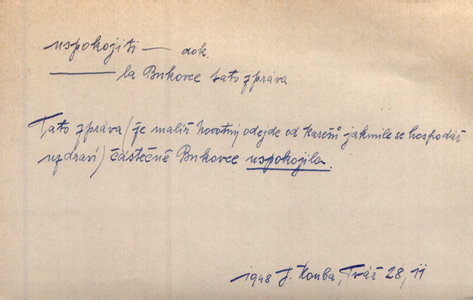 uspokojiti — dok.
——— la Bukovce tato zpráva
Tato zpráva (že malíř Novotný odejde od Karešů jakmile se hospodář
uzdraví) částečně Bukovce uspokojila.
1948 J. Kouba, Tvář 28, ii